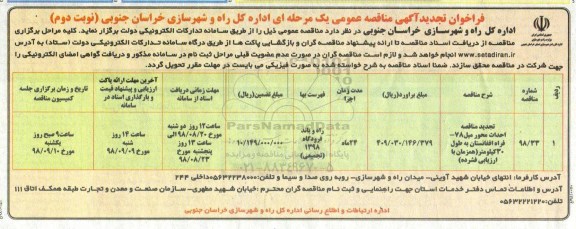 فراخوان تجدیدآگهی مناقصه عمومی یک مرحله ای اداره کل راه و شهرسازی خراسان جنوبی (نوبت دوم)
اداره کل راه و شهرسازی خراسان جنوبی در نظر دارد مناقصه عمومی ذیل را از طریق سامانه تدارکات الکترونیکی دولت برگزار نماید. کلیه مراحل برگزاری
مناقصه از دریافت اسناد مناقصه تا ارائه پیشنهاد مناقصه گران و بازگشایی پاکت ها از طریق درگاه سامانه تدارکات الکترونیکی دولت (ستاد) به آدرس
انجام خواهد شد و لازم است مناقصه گران در صورت عدم عضویت قبلی مراحل ثبت نام در سامانه مذکور و دریافت گواهی امضای الکترونیکی را
جهت شرکت در مناقصه محقق سازند. ضمنا اسناد مناقصه به شرح خواسته شده به صورت فیزیکی می بایست در مهلت مقرر تحویل گردد.
ردیف
شماره مناقصه
شرح مناقصه
مبلغ برآورد(ریال)
مدت زمان اجرا
فهرست بها
مبلغ تضمین(ریال)
مهلت زمانی دریافت اسناد از سامانه
آخرین مهلت ارائه پاکت ارزیابی و پیشنهاد قیمت و بارگذاری اسناد در سامانه
تاریخ و زمان برگزاری جلسه کمیسیون مناقصه
۱
۹۸/۳۳
تجدید مناقصه احداث محور میل۷۸- فراه افغانستان به طول ۳۰کیلومتر(همزمان با ارزیابی فشرده)
۴۰۹/۰۳۰/۱۴۶/۳۷۹
۲۴ماه
راه و باند فرودگاه ۱۳۹۸ (تجمیعی)
۱۰/۱۴۹/۰۰۰/۰۰۰
ساعت۱۲ روز دو شنبه ۹۸/۰۸/۲۰ الی ساعت ۱۳ روز پنجشنبه مورخ ۹۸/۰۸/۲۳
ساعت ۱۴ روز شنبه مورخ ۹۸/۰۹/۰۹
ساعت۹ صبح روز یکشنبه مورخ ۹۸/۰۹/۱۰
آدرس کارفرما: انتهای خیابان شهید آوینی- میدان راه و شهرسازی- روبه روی صدا و سیما و تلفن:۰۵۶۳۲۲۳۸۰۰۰داخلی ۲۴۳
آدرس و اطلاعات تماس دفتر خدمات استان جهت راهنمایی و ثبت نام مناقصه گران محترم :خیابان شهید مطهری- سازمان صنعت و معدن و تجارت طبقه همکف اتاق ۱۱۱
تلفن:۰۵۶۳۲۲۲۱۲۲۰
اداره ارتباطات و اطلاع رسانی اداره کل راه و شهرسازی خراسان جنوبی